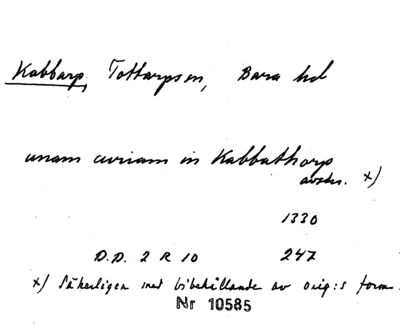 Kabbarp, Tottarps sn, Bara hd
unam curiam in Kabbathorp
avskr. x)
1330
D.D. 2 R 10 247
x) Säkerligen med bibehållande av orig:s form.
Nr 10585